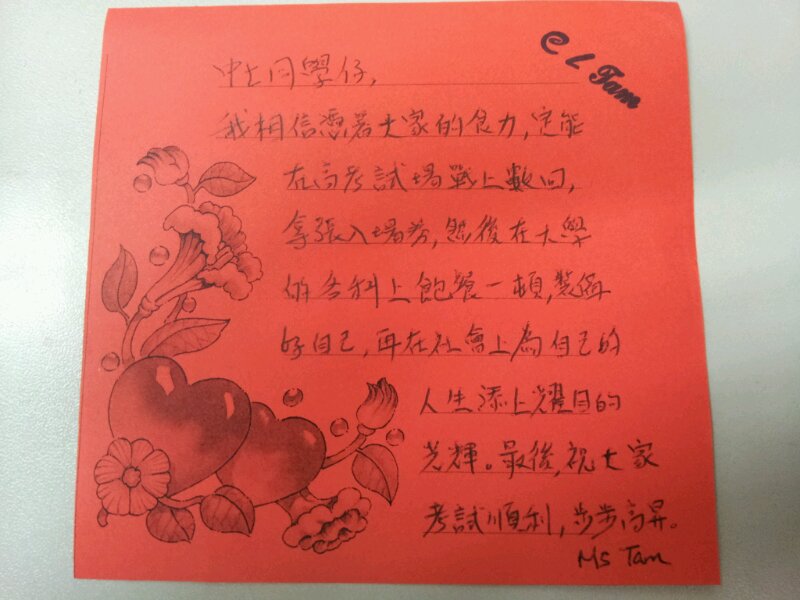 C L Tam
中七同學仔,
我相信憑着大家的食力,定能
在高考試場戰上數回,
拿張入場券,然後在大學
的各科上飽餐一頓,裝備
好自己,再在社會上為自己的
人生添上耀目的
光輝。最後,祝大家
考試順利,步步高昇。
Ms Tam